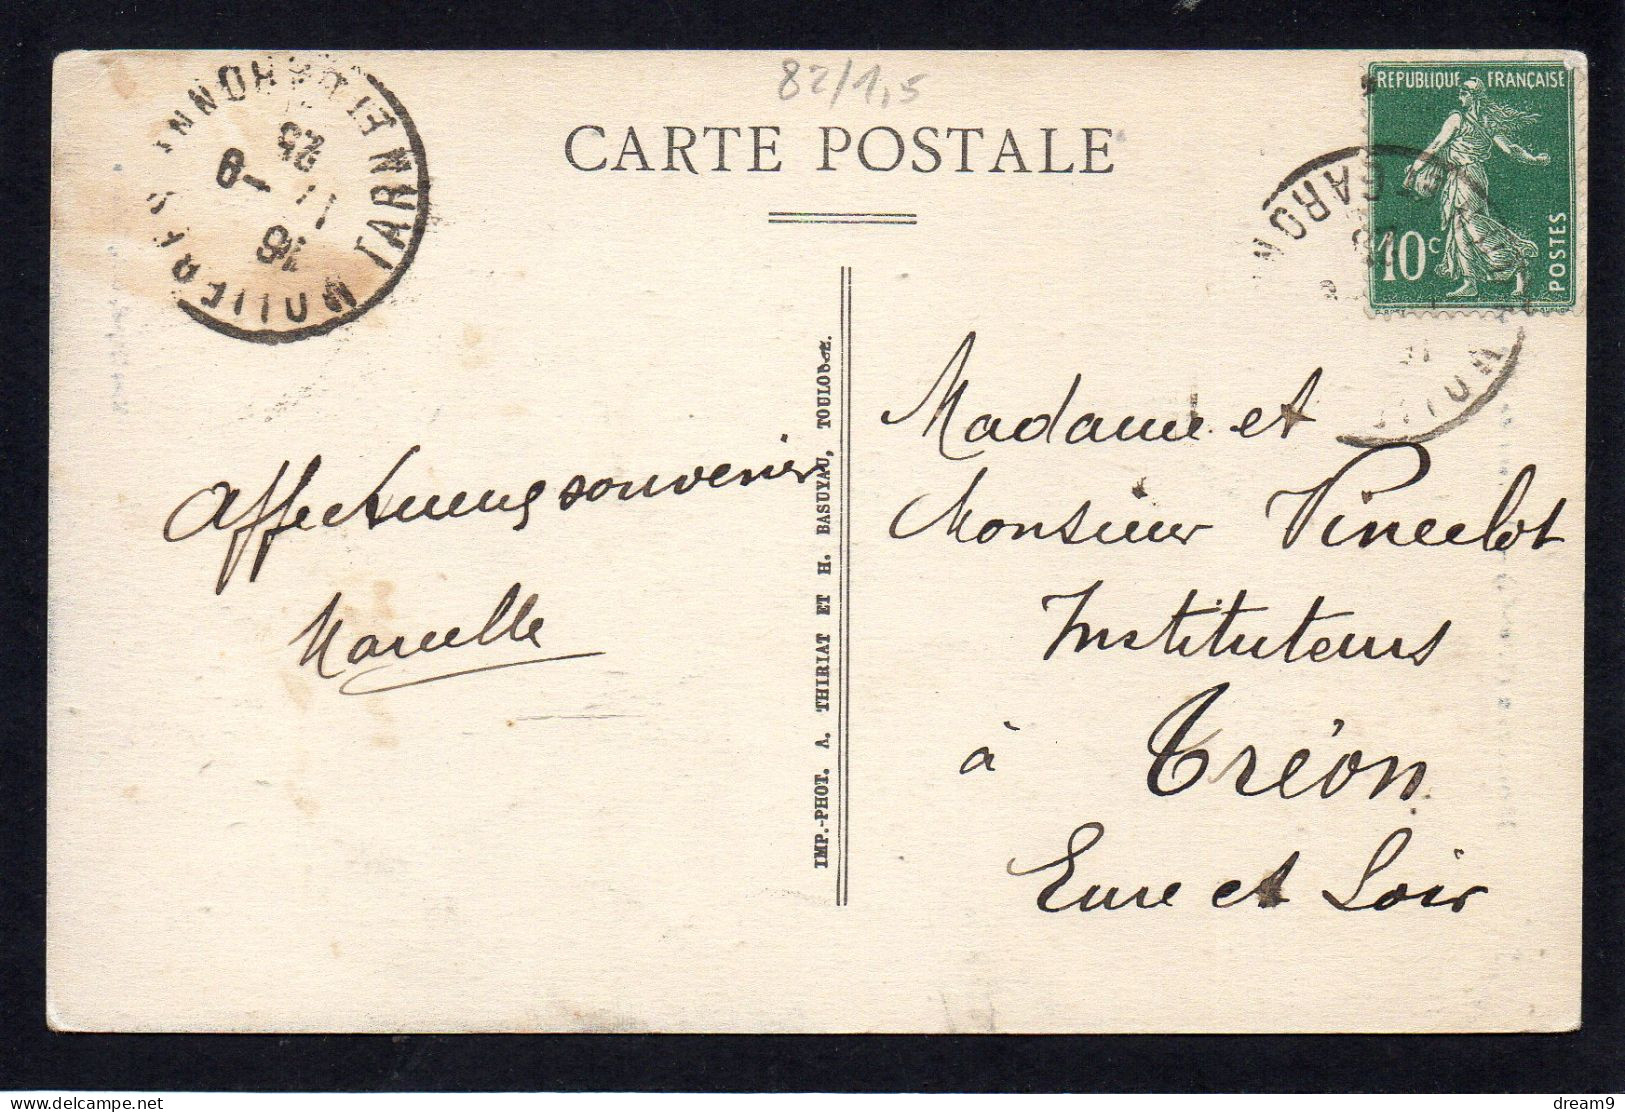 82/1,5
CARTE POSTALE
REPUBLIQUE FRANÇAISE
10c
POSTES
MOLIERES
TARN ET GARONNE
18
11
25
ET GARON
Affectueux souvenir
Marcelle
IMP.-PHOT. A. THIRIAT ET H. BASUYAU, TOULOUSE.
Madame et
Monsieur
Instituteurs
à Tréon
Eure et Loir
delcampe.net
dream9